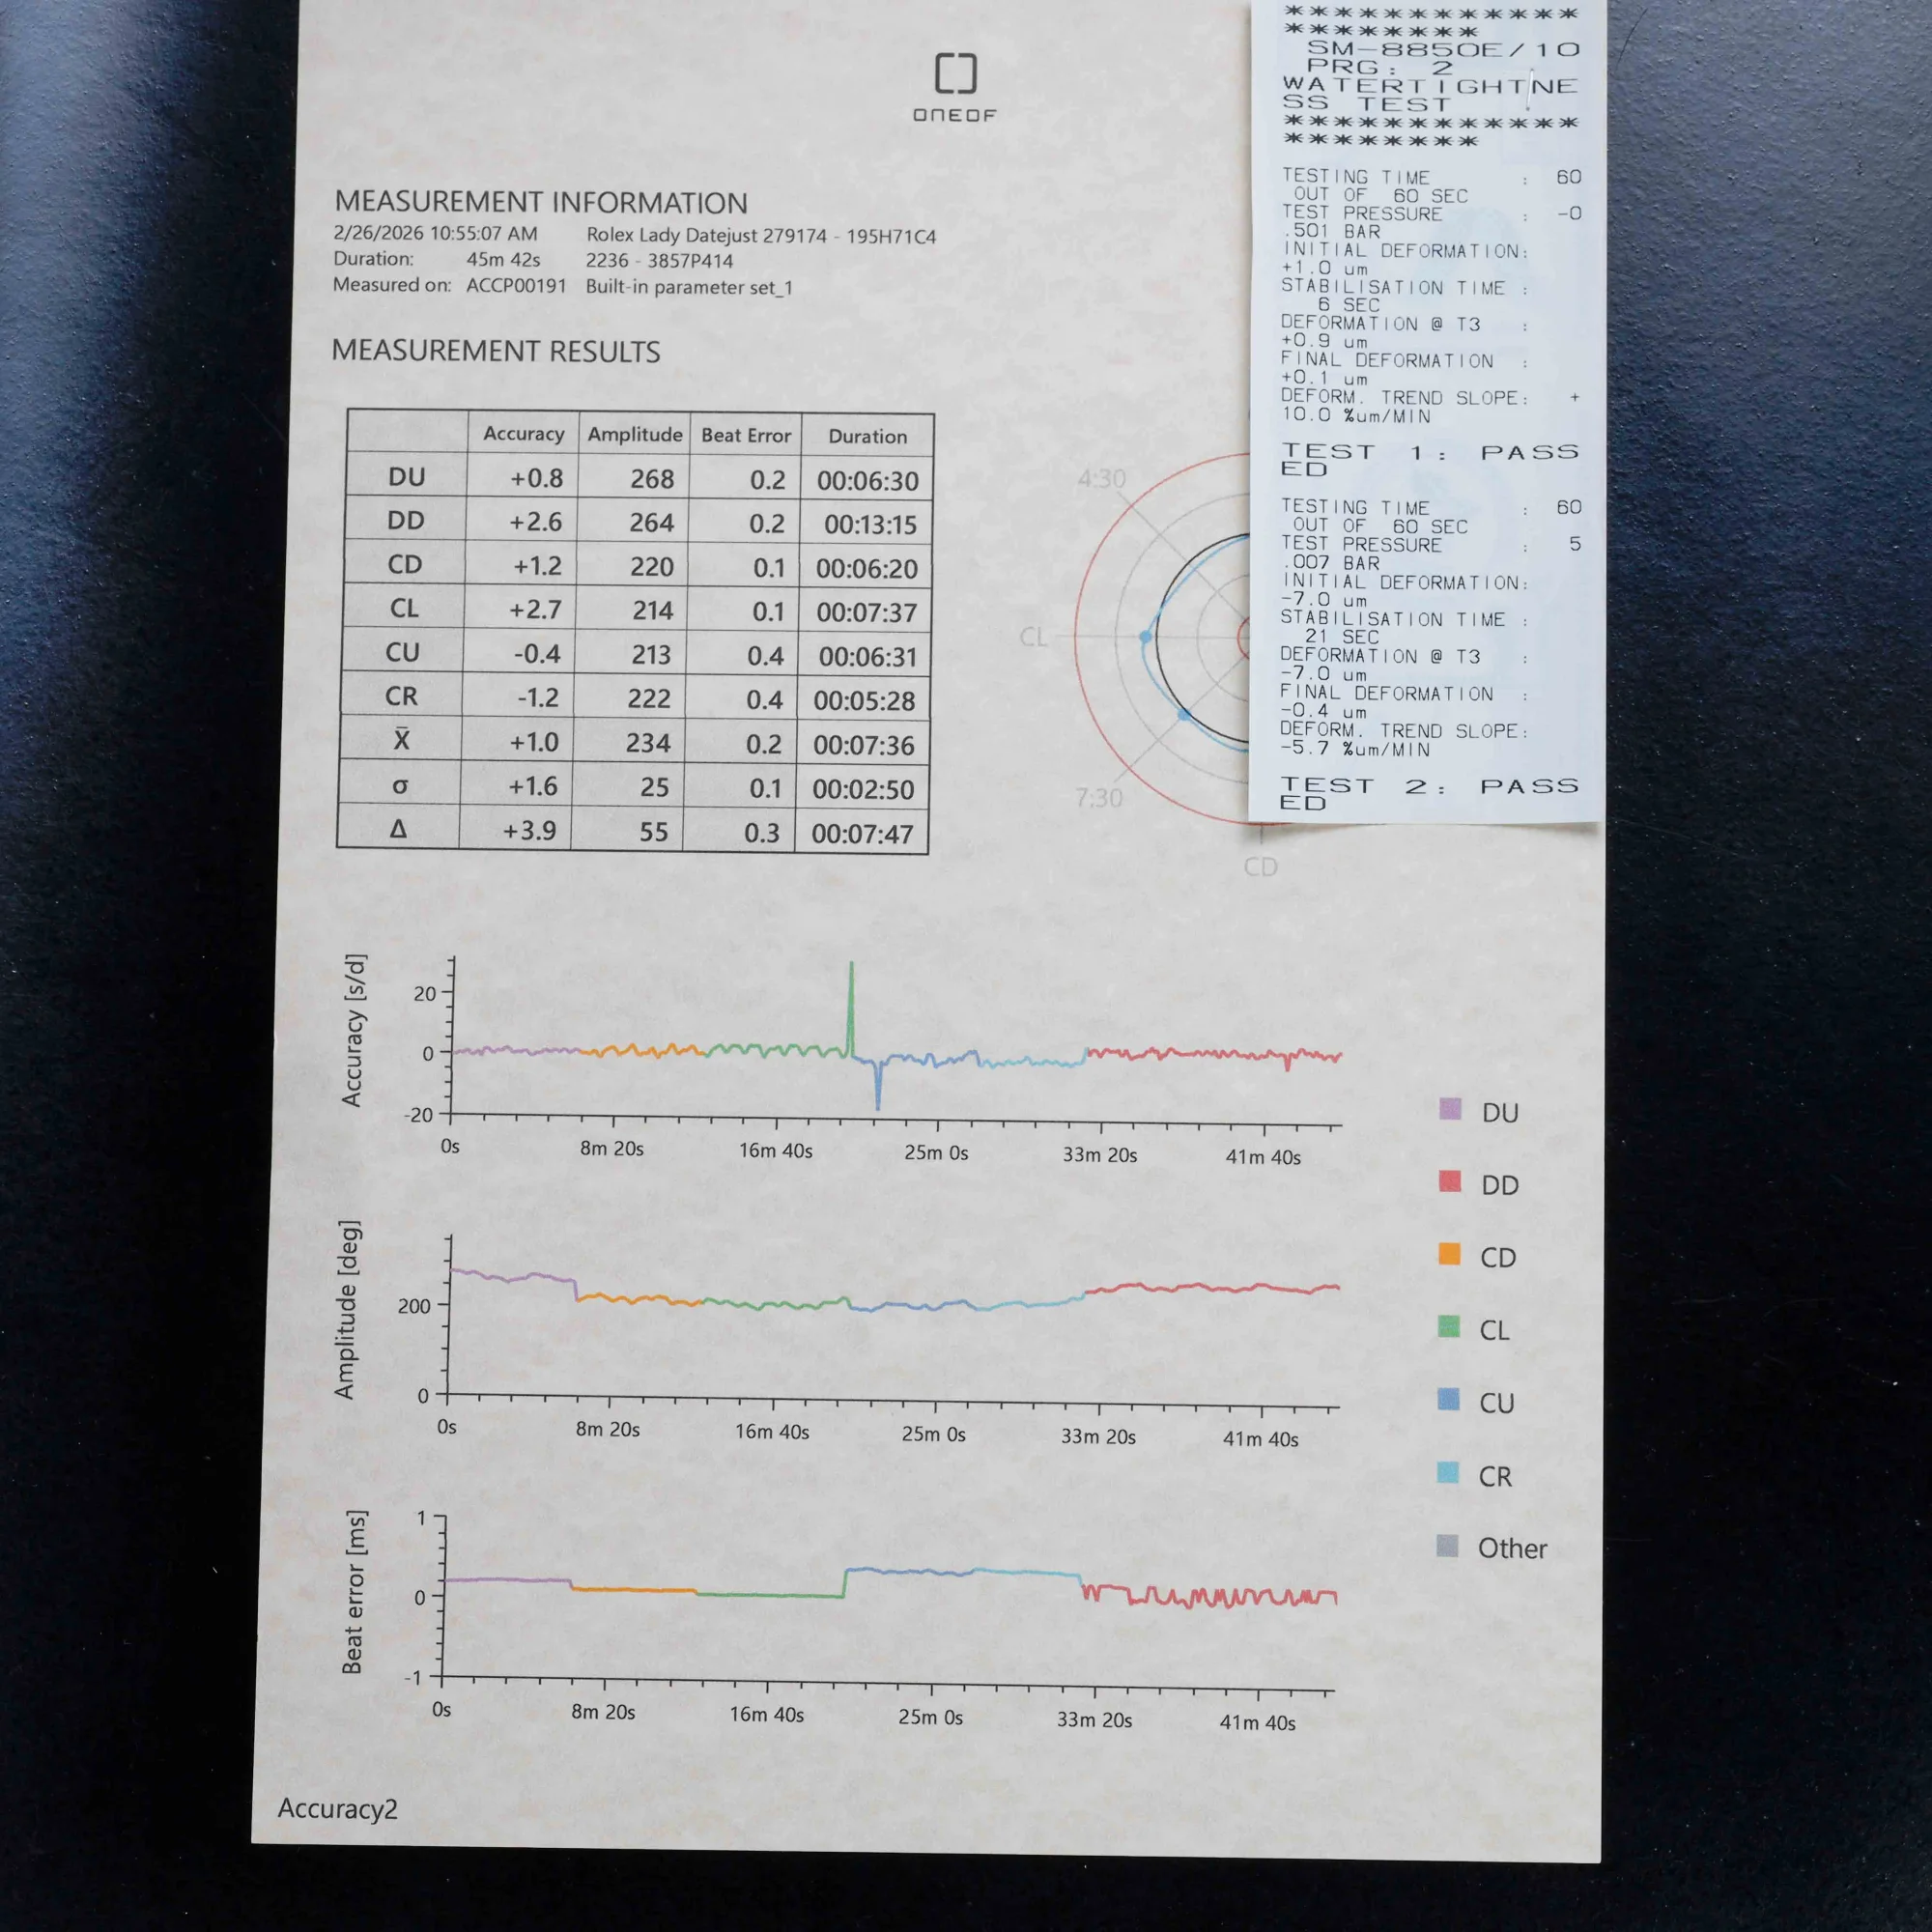 ONEOF
MEASUREMENT INFORMATION
2/26/2026 10:55:07 AM Rolex Lady Datejust 279174 - 195H71C4
Duration: 45m 42s 2236 - 3857P414
Measured on: ACCP00191 Built-in parameter set_1
MEASUREMENT RESULTS
Accuracy Amplitude Beat Error Duration
DU +0.8 268 0.2 00:06:30
DD +2.6 264 0.2 00:13:15
CD +1.2 220 0.1 00:06:20
CL +2.7 214 0.1 00:07:37
CU -0.4 213 0.4 00:06:31
CR -1.2 222 0.4 00:05:28
X̄ +1.0 234 0.2 00:07:36
σ +1.6 25 0.1 00:02:50
Δ +3.9 55 0.3 00:07:47
4:30
CL
7:30
CD
********************
SM-8850E/10
PRG: 2
WATERTIGHTNE
SS TEST
********************
TESTING TIME : 60
OUT OF 60 SEC
TEST PRESSURE : -0
.501 BAR
INITIAL DEFORMATION:
+1.0 um
STABILISATION TIME :
6 SEC
DEFORMATION @ T3 :
+0.9 um
FINAL DEFORMATION :
+0.1 um
DEFORM. TREND SLOPE: +
10.0 %um/MIN
TEST 1: PASS
ED
TESTING TIME : 60
OUT OF 60 SEC
TEST PRESSURE : 5
.007 BAR
INITIAL DEFORMATION:
-7.0 um
STABILISATION TIME :
21 SEC
DEFORMATION @ T3 :
-7.0 um
FINAL DEFORMATION :
-0.4 um
DEFORM. TREND SLOPE:
-5.7 %um/MIN
TEST 2: PASS
ED
Accuracy [s/d]
20
0
-20
0s 8m 20s 16m 40s 25m 0s 33m 20s 41m 40s
Amplitude [deg]
200
0
0s 8m 20s 16m 40s 25m 0s 33m 20s 41m 40s
Beat error [ms]
1
0
-1
0s 8m 20s 16m 40s 25m 0s 33m 20s 41m 40s
DU
DD
CD
CL
CU
CR
Other
Accuracy2